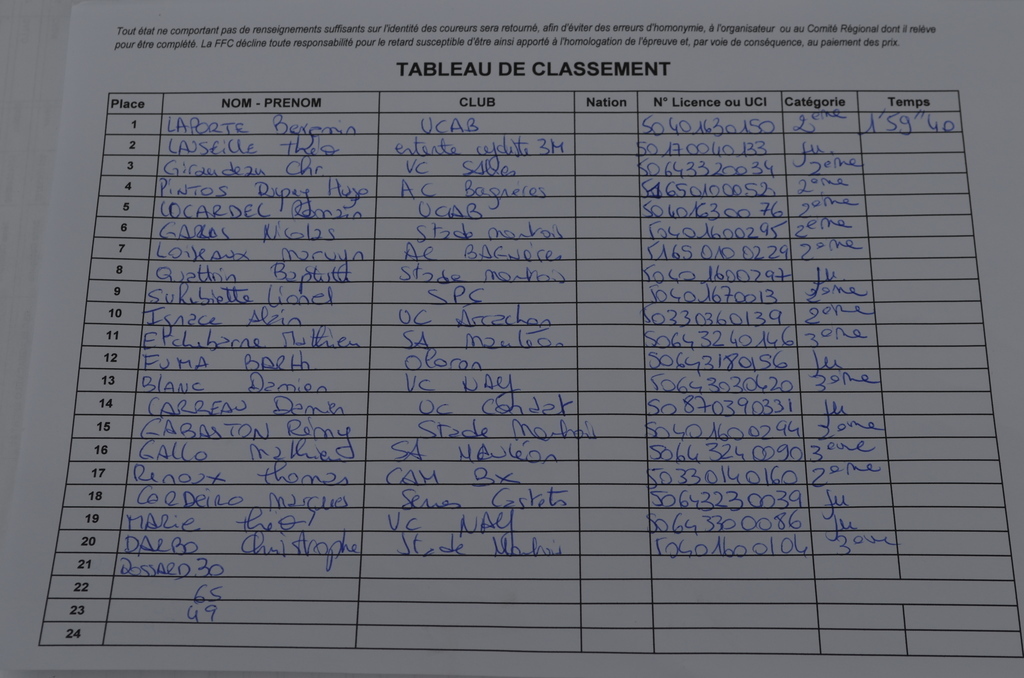 Tout état ne comportant pas de renseignements suffisants sur l'identité des coureurs sera retourné, afin d'éviter des erreurs d'homonymie, à l'organisateur ou au Comité Régional dont il relève
pour être complété. La FFC décline toute responsabilité pour le retard susceptible d'être ainsi apporté à l'homologation de l'épreuve et, par voie de conséquence, au paiement des prix.
TABLEAU DE CLASSEMENT
Place NOM - PRENOM CLUB Nation N° Licence ou UCI Catégorie Temps
1 LAPORTE UCAB 50401630150 2eme 1'59"40
2 théo entente cycliste 3M 50170040133 Ju
3 Giraudeau Chr VC Salles 50643320034 2eme
4 PINTOS Dupey Hugo AC Bagneres 51650100052 2eme
5 LOCARDEL Romain UCAB 50401630076 2eme
6 Nicolas Stade montois 50401600295 2eme
7 LOISEAUX AC BAGNères 51650100229 2eme
8 Stade montois 50401600297 Ju
9 Lionel SPC 50401670013 3eme
10 Ignace Alain UC Arcachon 50330360139 2eme
11 Etcheberne Mathieu SA Mauléon 50643240146 3eme
12 FUMA BARth Oloron 50643180156 Ju
13 BLANC Damien VC NAY 50643030420 3eme
14 CARREAU UC Condat 50870390331 Ju
15 GABASTON Rémy Stade Montois 50401600294 3eme
16 GALLO SA Mauléon 50643240090 3eme
17 Renoux thomas CAM Bx 50330140160 2eme
18 CORDEIRO Marques 50643230039 Ju
19 MARIE théo VC NAY 50643300086 Ju
20 DARBO Christrophe Stade Montois 50401600104 3eme
21 DOSSARD 30
22 65
23 49
24